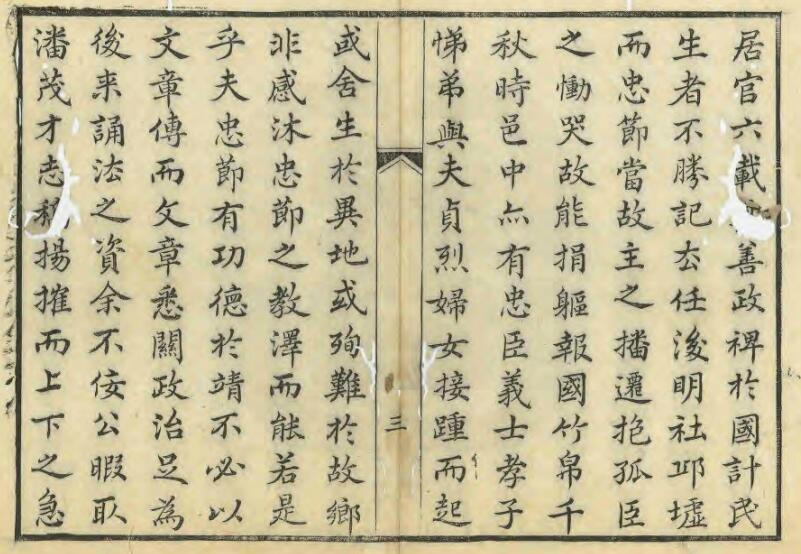 居官六載善政裨於國計民
生者不勝記厺任後明社邱墟
而忠節當故主之播遷抱孤臣
之慟哭故能捐軀報國竹帛千
秋時邑中亦有忠臣義士孝子
悌弟與夫貞烈婦女接踵而起
三
或舍生於異地或殉難於故鄉
非感沐忠節之教澤而能若是
乎夫忠節有功德於靖不必以
文章傳而文章悉關政治足為
後来誦法之資余不佞公暇取
潘茂才志揚搉而上下之急